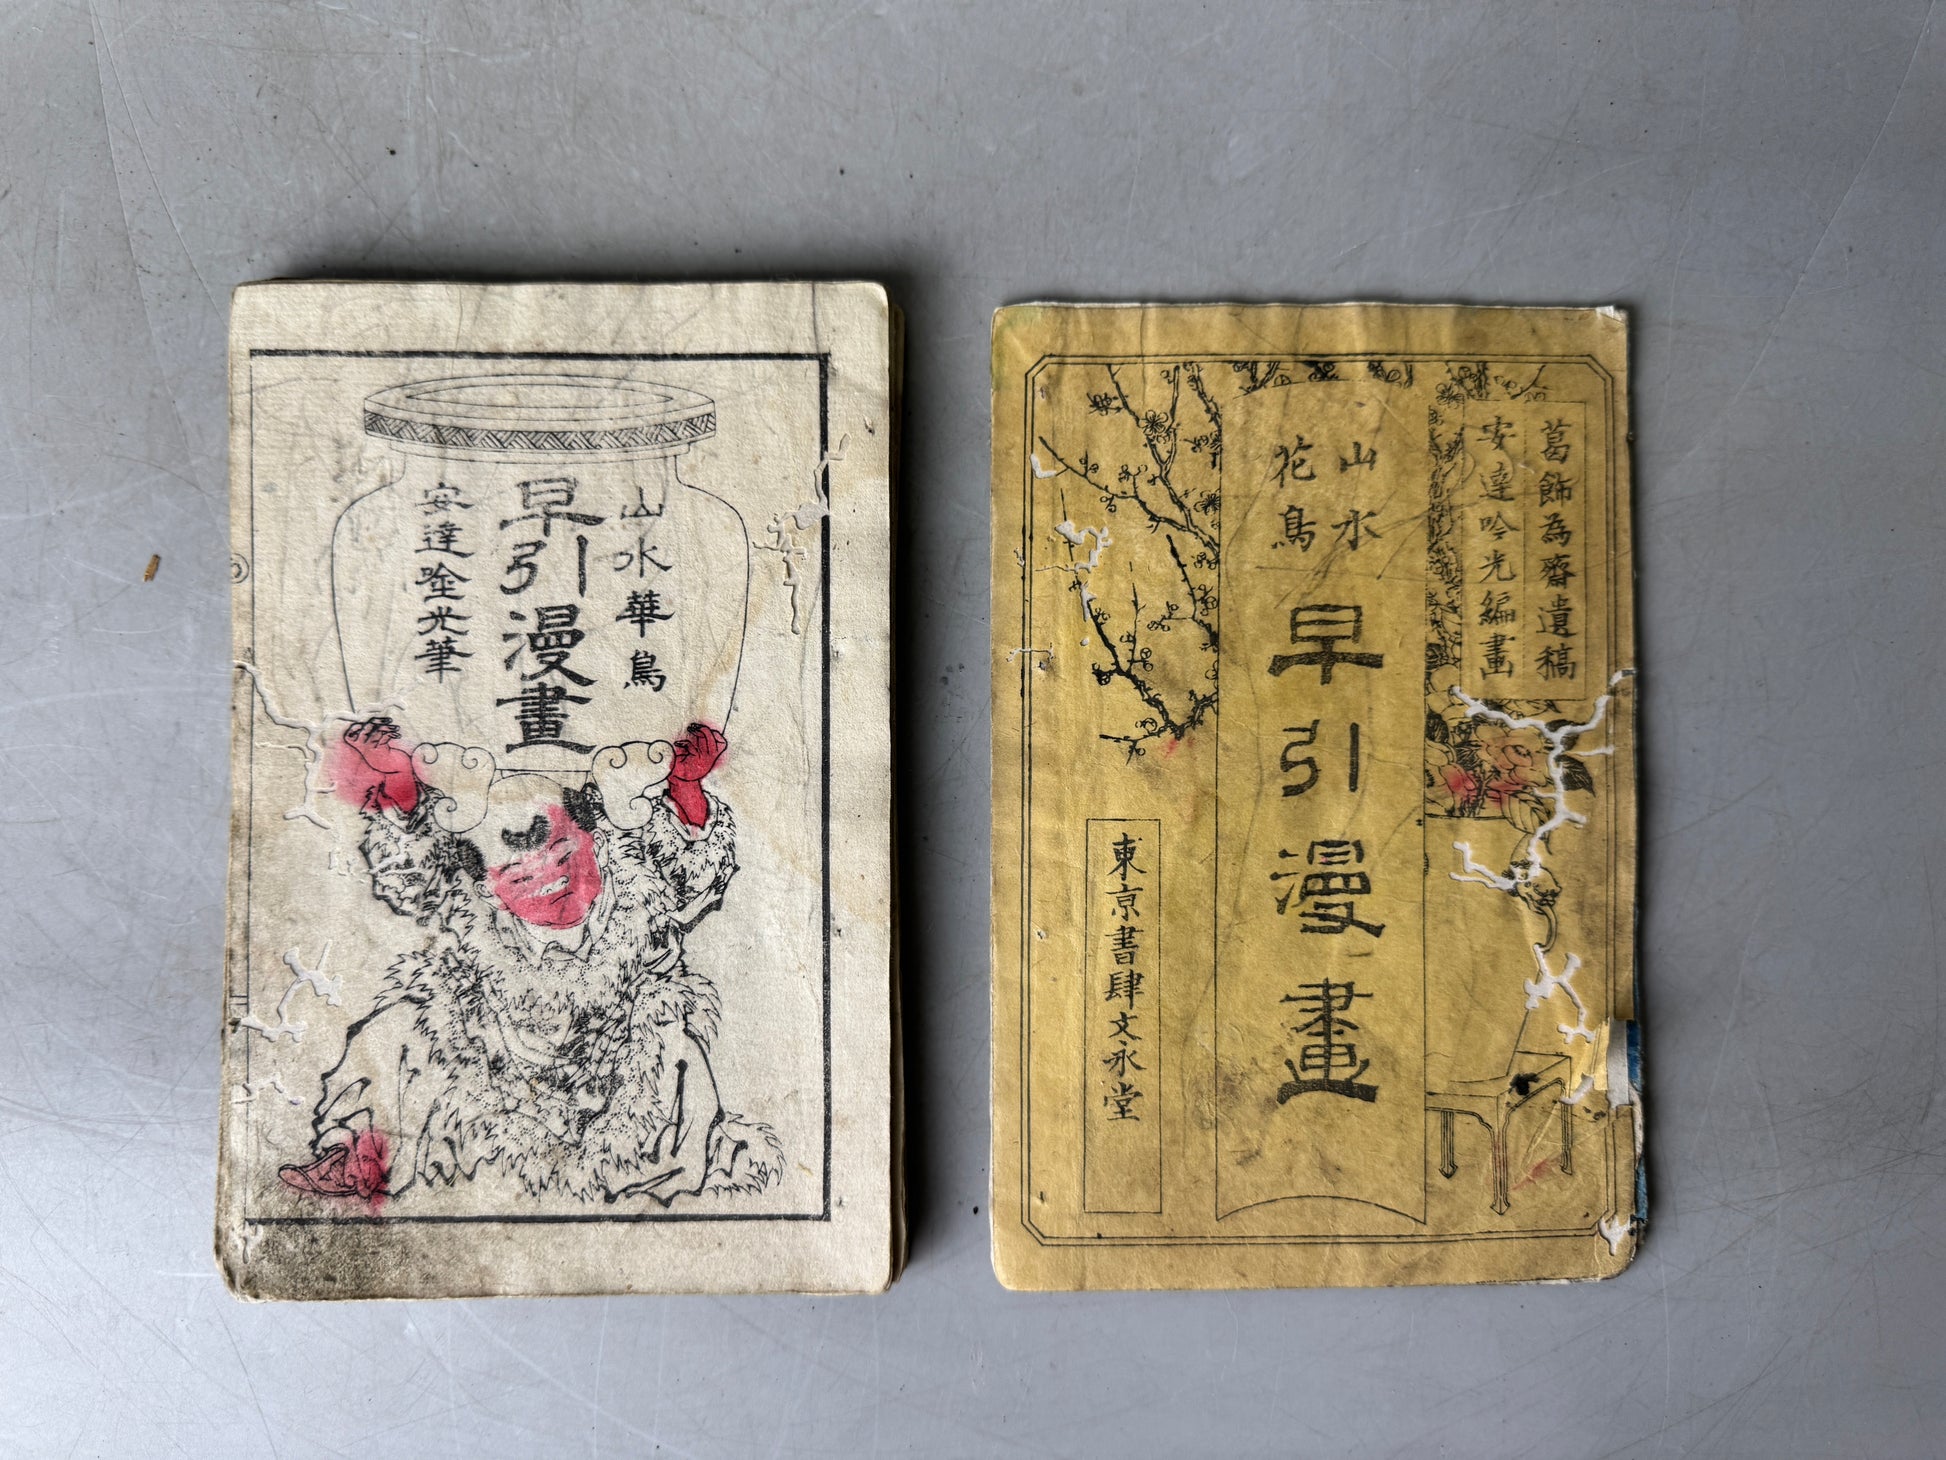 山水華鳥
早引漫畫
安達吟光筆
葛飾為齋遺稿
安達吟光編畫
山水
花鳥
早引漫畫
東京書肆文永堂